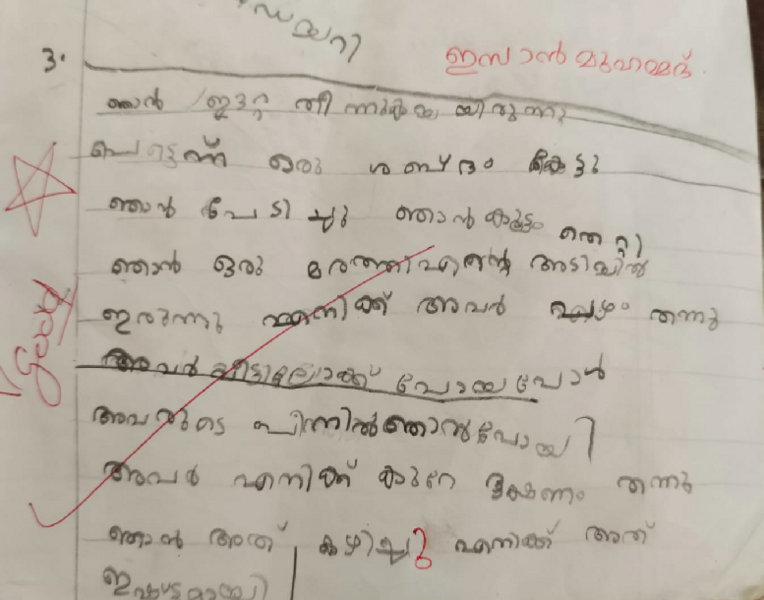 ഡയറി
3. ഇസാൻ മുഹമ്മദ്.
ഞാൻ ഇര തിന്നുകയായിരുന്നു
പെട്ടെന്ന് ഒരു ശബ്ദം കേട്ടു
ഞാൻ പേടിച്ചു ഞാൻ കൂട്ടം തെറ്റി
ഞാൻ ഒരു മരത്തി എന്റെ അടിയിൽ
ഇരുന്നു എനിക്ക് അവർ പഴം തന്നു
അവർ വീട്ടിലോക്ക് പോയപോൾ
അവരുടെ പിന്നിൽ ഞാനുപോയി
അവർ എനിക്ക് കുറേ ഭക്ഷണം തന്നു
ഞാൻ അത് കഴിച്ചു എനിക്ക് അത്
ഇഷ്ടമായി
Good